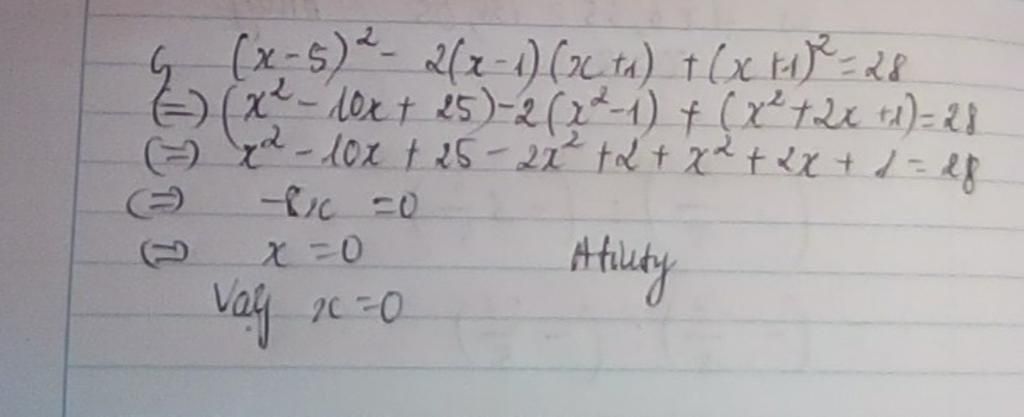 G (x-5)² - 2(x-1)(x+1) + (x+1)² = 28
(=) (x² - 10x + 25) - 2(x² - 1) + (x² + 2x + 1) = 28
(=) x² - 10x + 25 - 2x² + 2 + x² + 2x + 1 = 28
(=) -8x = 0
(=) x = 0 Atiluty
Vậy x = 0